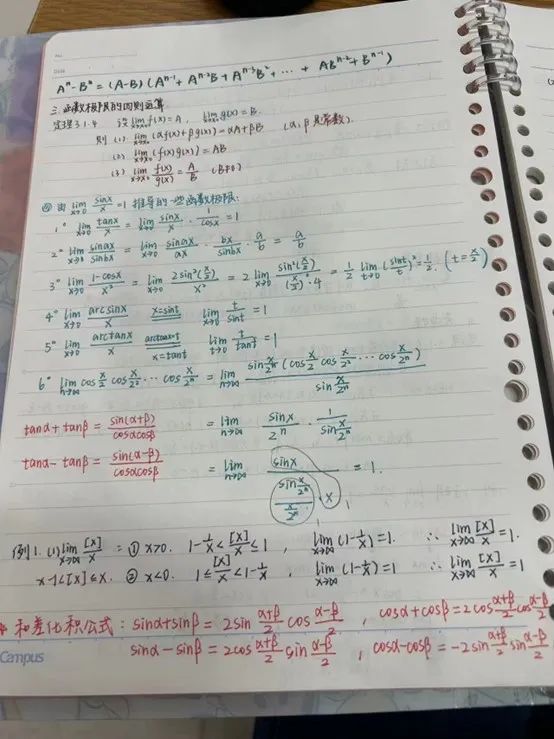 No.
Date
Aⁿ-Bⁿ = (A-B)(Aⁿ⁻¹+Aⁿ⁻²B+Aⁿ⁻³B²+⋯+ABⁿ⁻²+Bⁿ⁻¹)
三.函数极限的四则运算
定理3.1.4 设lim_{x→x₀} f(x)=A, lim_{x→x₀} g(x)=B.
则 (1) lim_{x→x₀} (αf(x)+βg(x))=αA+βB (α,β是常数).
(2) lim_{x→x₀} (f(x)g(x))=AB
(3) lim_{x→x₀} f(x)/g(x) = A/B (B≠0)
由 lim_{x→0} sinx/x =1 推导的一些函数极限:
1° lim_{x→0} tanx/x = lim_{x→0} sinx/x · 1/cosx = 1
2° lim_{x→0} sinax/sinbx = lim_{x→0} sinax/ax · bx/sinbx · a/b = a/b
3° lim_{x→0} (1-cosx)/x² = lim_{x→0} 2sin²(x/2)/x² = 2 lim_{x→0} sin²(x/2)/((x/2)²·4) = 1/2 lim_{t→0} (sint/t)² = 1/2. (t=x/2)
4° lim_{x→0} arcsinx/x x=sint lim_{t→0} t/sint = 1
5° lim_{x→0} arctanx/x arctanx=t x=tant lim_{t→0} t/tant = 1
6° lim_{n→∞} cos x/2 cos x/2² ⋯ cos x/2ⁿ = lim_{n→∞} sin x/2ⁿ (cos x/2 cos x/2² ⋯ cos x/2ⁿ) / sin x/2ⁿ
tanα+tanβ = sin(α+β)/cosαcosβ = lim_{n→∞} sinx/2ⁿ · 1/sin x/2ⁿ
tanα-tanβ = sin(α-β)/cosαcosβ = lim_{n→∞} sinx / ((sin x/2ⁿ)/(x/2ⁿ) · x) = 1.
例1.(1) lim_{x→∞} [x]/x = ① x>0. 1-1/x < [x]/x ≤ 1, lim_{x→∞} (1-1/x)=1. ∴ lim_{x→∞} [x]/x = 1.
x-1<[x]≤x. ② x<0. 1 ≤ [x]/x < 1-1/x, lim_{x→∞} (1-1/x)=1 ∴ lim_{x→∞} [x]/x = 1
和差化积公式: sinα+sinβ = 2sin (α+β)/2 cos (α-β)/2, cosα+cosβ = 2cos (α+β)/2 cos (α-β)/2
sinα-sinβ = 2cos (α+β)/2 sin (α-β)/2, cosα-cosβ = -2sin (α+β)/2 sin (α-β)/2
Campus